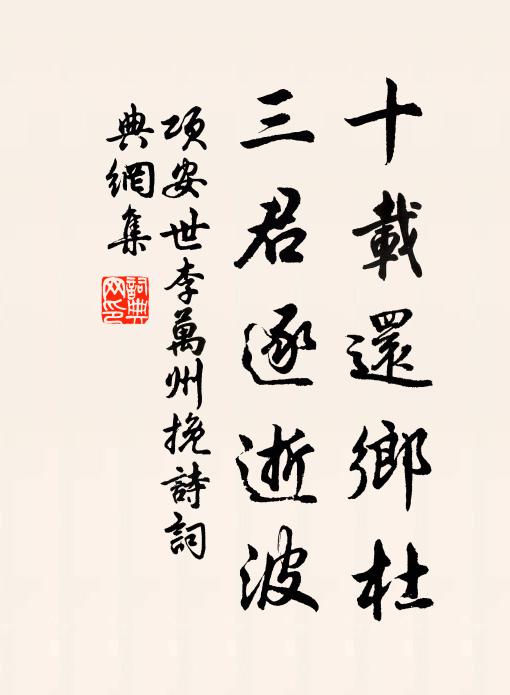 十載還鄉杜
三君逐逝波
項安世李萬州挽詩詞
典網集
詞典
网印